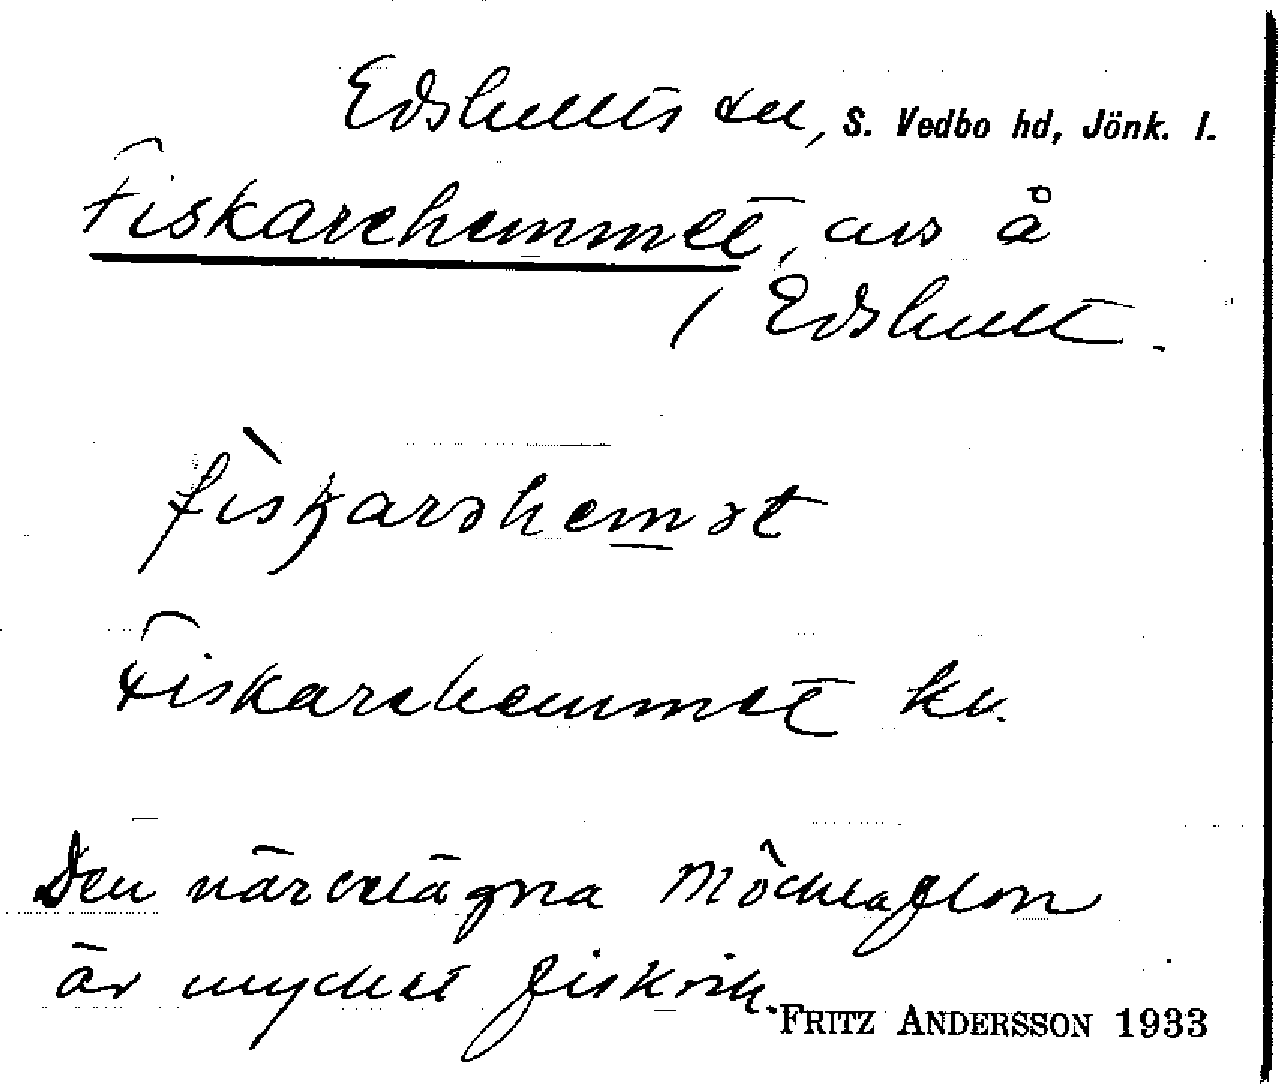 Edshults sn, S. Vedbo hd, Jönk. l.
Fiskarehemmet, avs å
/ Edshult.
fìskarəhemət
Fiskarehemmet kv.
Den närbelägna Möcklaflon
är mycket fiskrik.
FRITZ ANDERSSON 1933